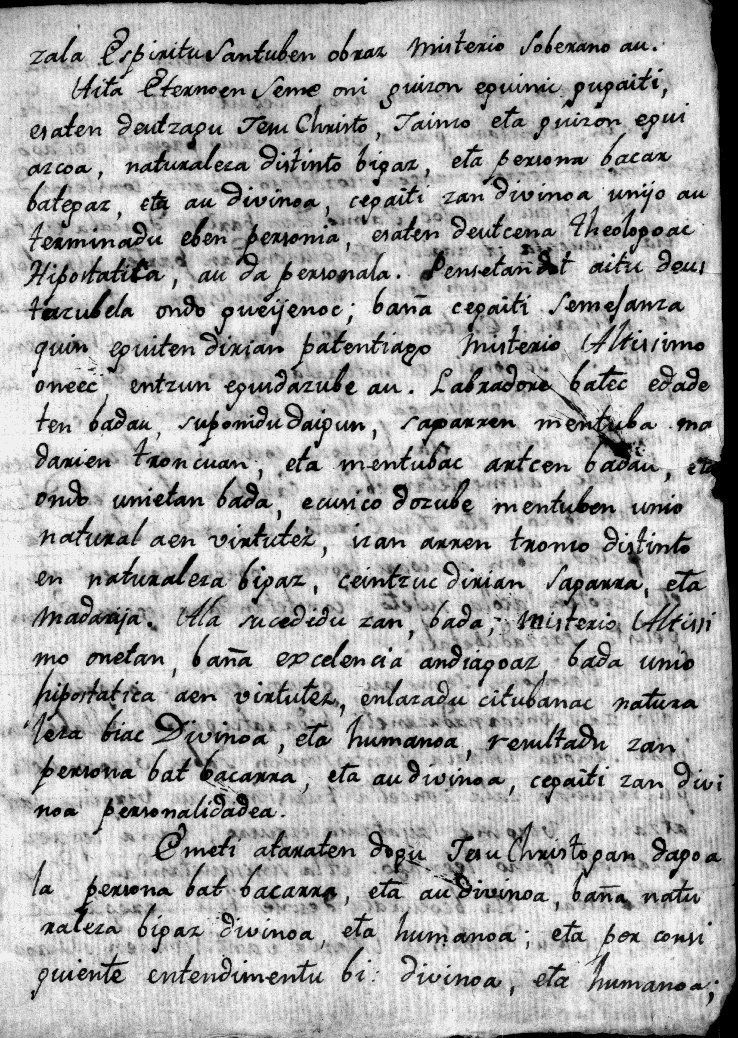 zala Espiritu Santuben obraz Misterio Soberano au.
Aita Eternoen Seme oni guizon eguinic gugaiti,
esaten deutzagu Jesu Christo, Jainco eta guizon egui
azcoa, naturaleza distinto bigaz, eta persona bacar
bategaz, eta au divinoa, cegaiti zan divinoa unijo au
terminadu eben personia, esaten deutcena Theologoac
Hipostatica, au da personala. Pensetan dot aitu deus
tazubela ondo gueijenoc; baña cegaiti Semejanza
gaz eguiten dirian patentiago Misterio Altissimo
oneec, entzun eguidazube au. Labradore batec edade
ten badau, suponidu daigun, saparren mentuba ma
darien troncuan, eta mentubac artcen badau, eta
ondo unietan bada, ecusico dozube mentuben unio
natural aen virtutez, izan arren tronco distinto
en naturaleza bigaz, ceintzuc dirian saparra, eta
Madarija. Ala sucedidu zan, bada, Misterio Altissi
mo onetan, baña excelencia andiagoaz, bada unio
hipostatica aen virtutez, enlazadu citubanac natura
leza biac Divinoa, eta humanoa, resultadu zan
persona bat bacarra, eta au divinoa, cegaiti zan divi
noa personalidadea.
Emeti ataraten dogu Jesu Christogan dagoa
la persona bat bacarra, eta au divinoa, baña natu
raleza bigaz divinoa, eta humanoa; eta por consi
guiente entendimentu bi: divinoa, eta humanoa;